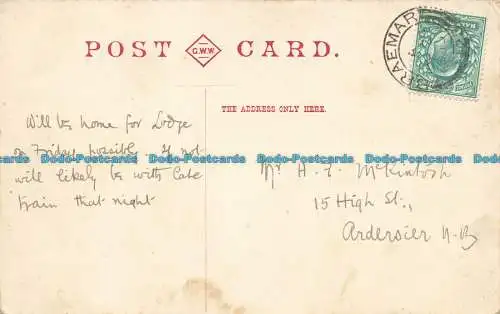 POST G.W.W CARD.
BRAEMAR
THE ADDRESS ONLY HERE.
Will be home for Lodge
on Friday possible. If not
will likely be with late
train that night
Mr H. I. McKintosh
15 High St.,
Ardersier N.B
Dodo-Postcards Dodo-Postcards Dodo-Postcards Dodo-Postcards Dodo-Postcards